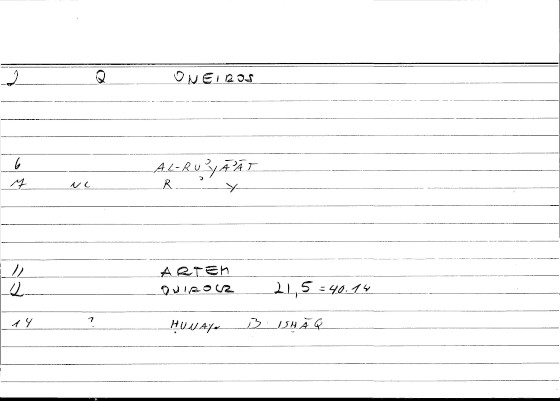 2 Q ONEIROS
6 AL-RUʾYĀʾĀT
7 NC R ʾ Y
11 ARTEM
12 QUIROCR 21,5 = 40.14
14 ? ḤUNAYN B ISḤĀQ